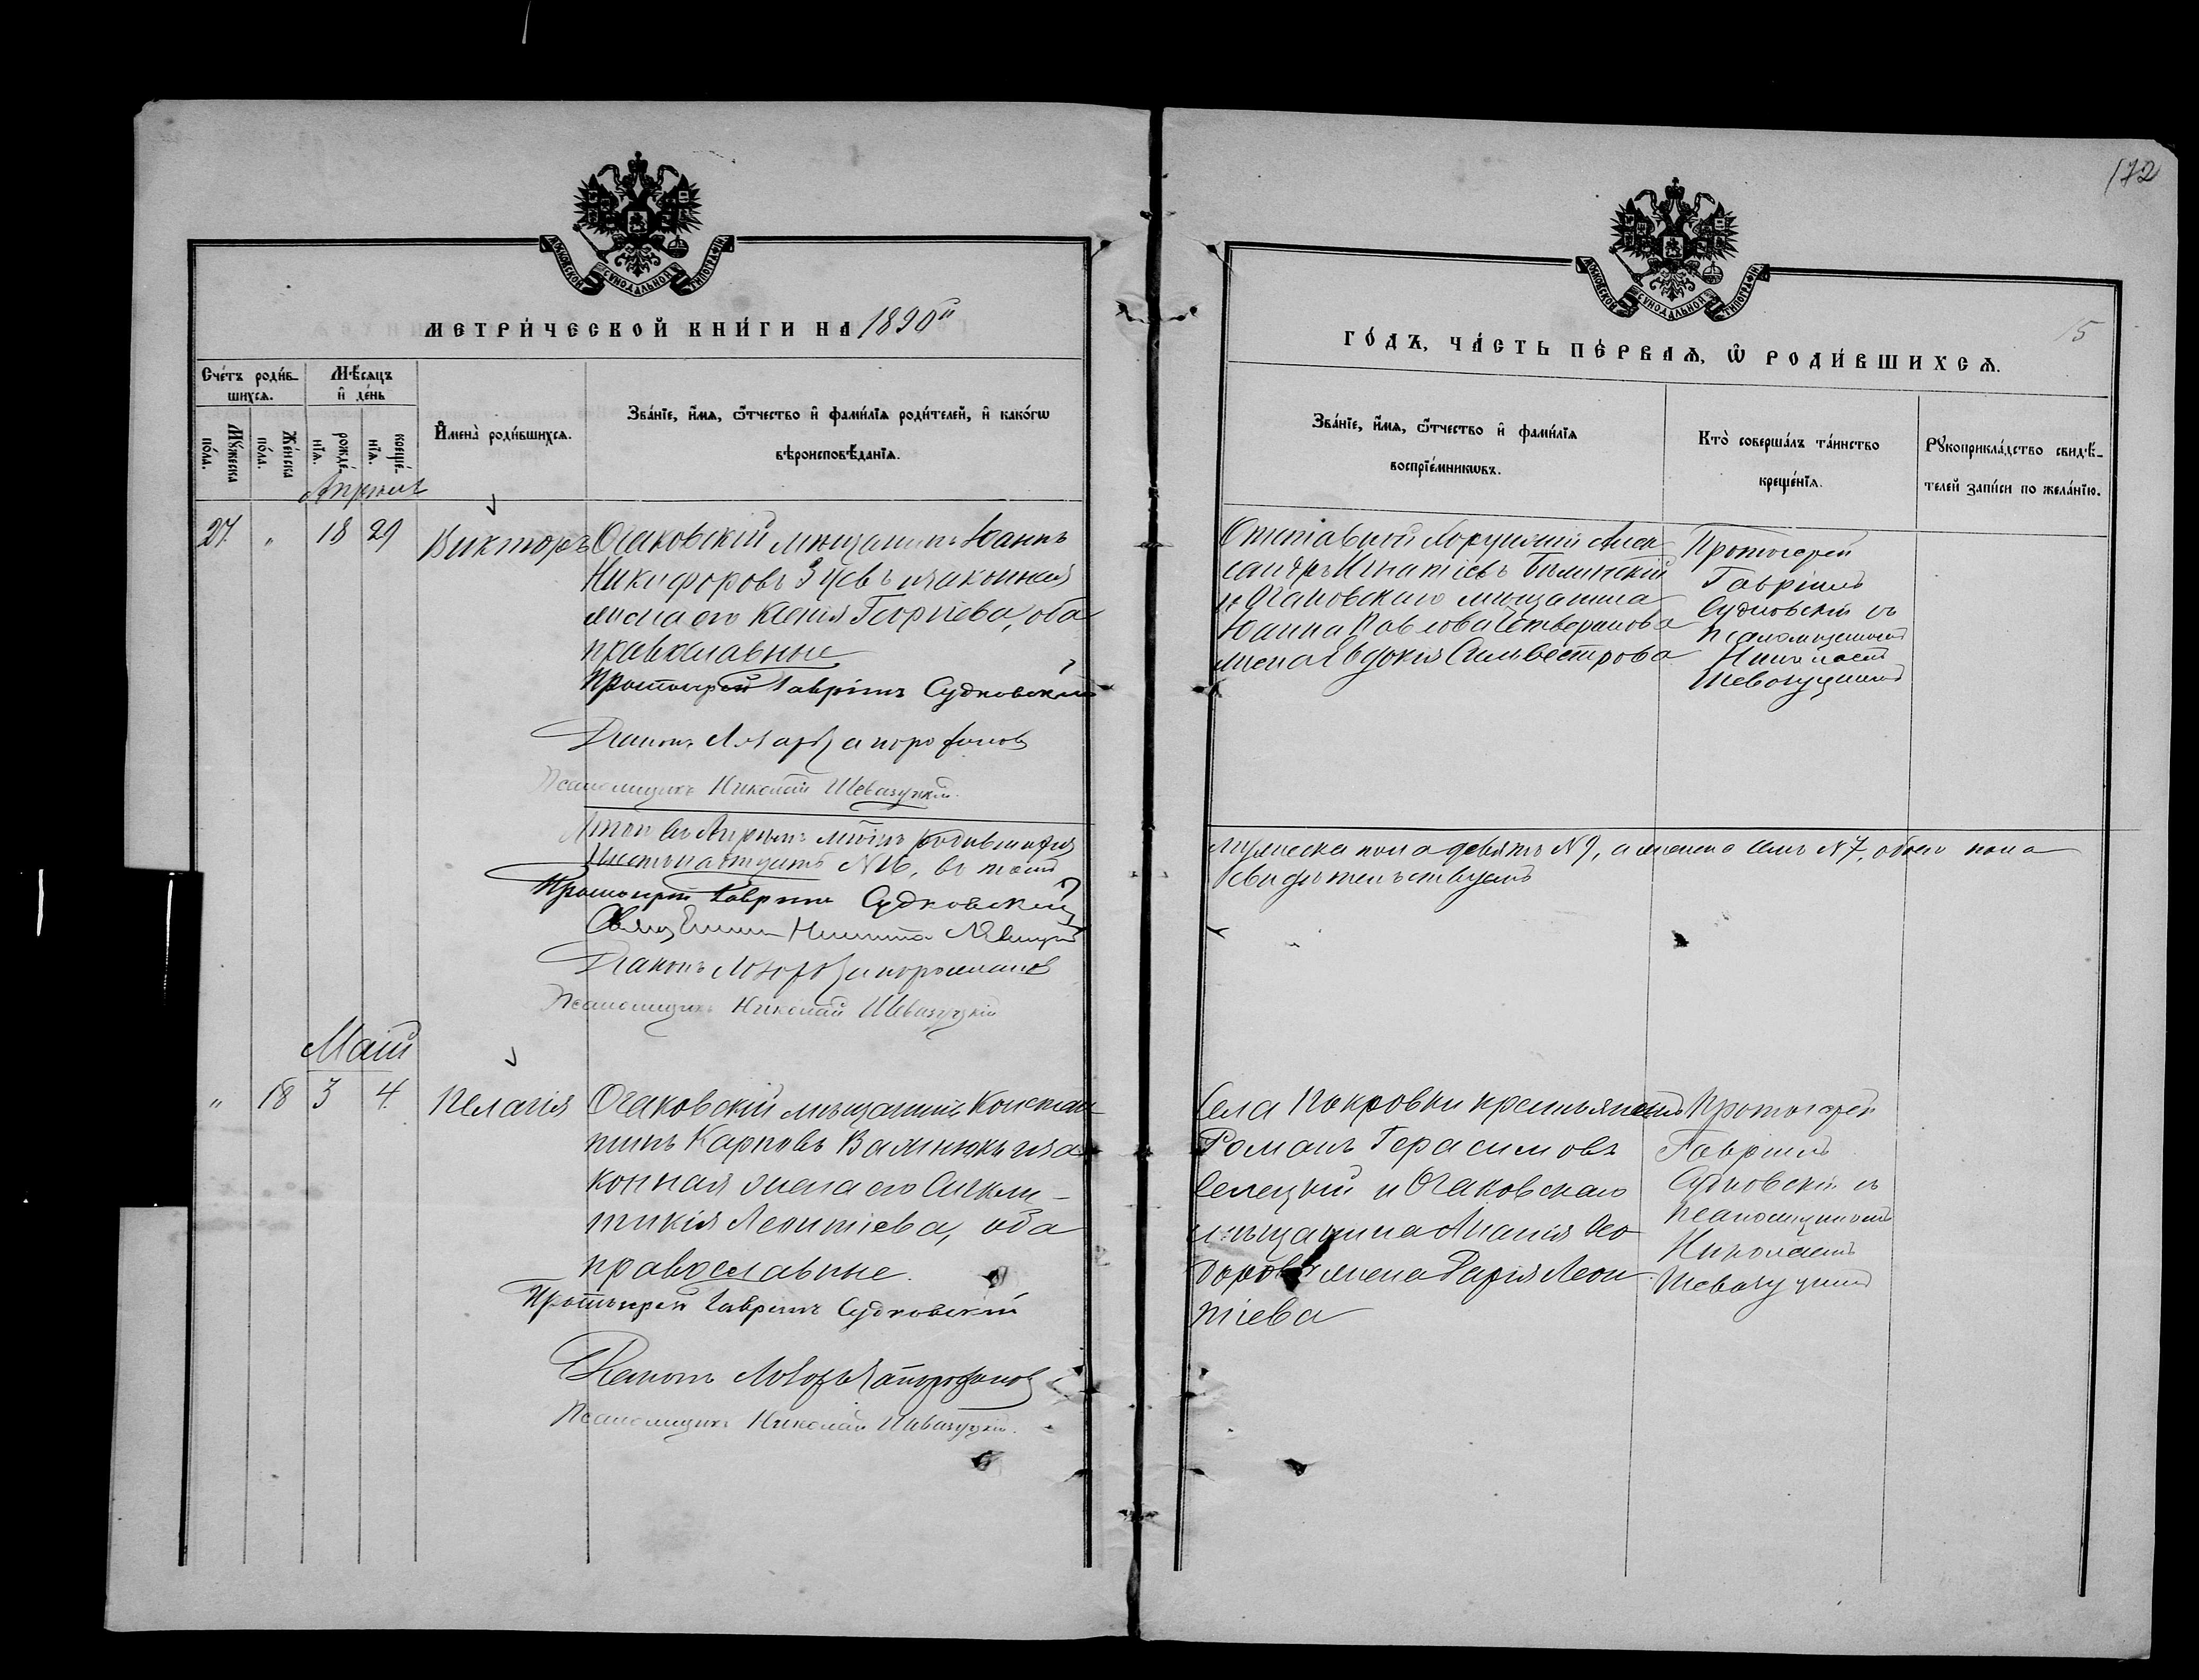 172
МОСКОВСКОЙ СѴНОДАЛЬНОЙ ТИПОГРАФІИ
МЕТРИ́ЧЕСКОЙ КНИ́ГИ НА 1890й
Сче́тъ роди́в-
шихсѧ.
Мꙋ́жеска
по́ла.
Же́нска
по́ла.
Мѣ́сѧцъ
и҆ де́нь
рожде́-
нїѧ.
креще́-
нїѧ.
И҆мена̀ роди́вшихсѧ.
Зва́нїе, и҆́мѧ, ѻ҆́тчество и҆ фами́лїѧ роди́телей, и҆ како́гѡ
вѣроисповѣ́данїѧ.
Апрель
27. " 18 29
Викторъ
Очаковскій мѣщанинъ Іоаннъ
Никифоровъ Зуевъ и законная
жена его Ксенія Георгіева, оба
православные
Протоіерей Гавріилъ Судковскій
Діаконъ
Псаломщикъ Николай Шевазуцкій.
Итого въ Апрѣлѣ мѣсяцѣ родившихся
Шестнадцать №16, въ томъ
Протоіерей Гавріилъ Судковскій
Священникъ Никита
Діаконъ
Псаломщикъ Николай Шевазуцкій
Май
" 18 3 4.
Пелагія
Очаковскій мѣщанинъ Констан-
тинъ Карповъ и за-
конная жена его Сигкли-
тикія Леонтіева, оба
православные.
Протоіерей Гавріилъ Судковскій
Діаконъ
Псаломщикъ Николай Шевазуцкій.
МОСКОВСКОЙ СѴНОДАЛЬНОЙ ТИПОГРАФІИ
15
ГО́ДЪ, ЧА́СТЬ ПЕ́РВАѦ, Ѡ҆ РОДИ́ВШИХСѦ.
Зва́нїе, и҆́мѧ, ѻ҆́тчество и҆ фами́лїѧ
воспрїе́мникѡвъ.
Кто̀ соверша́лъ та́инство
креще́нїѧ.
Рꙋкоприкла́дство свидѣ́-
телей за́писи по жела́нїю.
Отставной Поручикъ Алек-
сандръ Игнатіевъ
и Очаковскаго мѣщанина
Іоанна Павлова
жена Евдокія Сильвестрова
Протоіерей
Гавріилъ
Судковскій съ
псаломщикомъ
Николаемъ
Шевазуцкимъ
мужеска пола девять №9, а женска семь №7, обоего пола
свидѣтельствуемъ
Села Покровки крестьянинъ
Романъ Герасимовъ
и Очаковскаго
мѣщанина Ананія Ѳео-
дорова жена Дарія Леон-
тіева
Протоіерей
Гавріилъ
Судковскій съ
псаломщикомъ
Николаемъ
Шевазуцкимъ